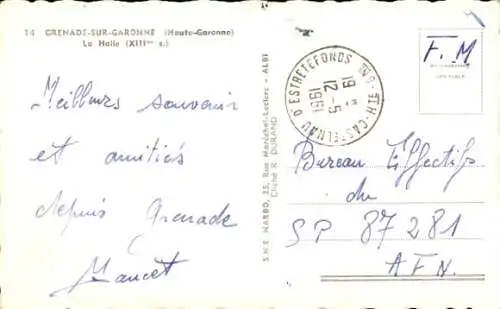 14 GRENADE-SUR-GARONNE (Haute-Garonne)
La Halle (XIIIme s.)
Meilleurs souvenir
et amitiés
depuis Grenade
S.N.E. NARBO, 25, Rue Maréchal-Leclerc - ALBI
Cliché R. DURAND
CASTELNAU D'ESTRETEFONDS
19 H
12 - 5
1961
HTE GNE
F. M
Bureau Effectifs
du
SP 87281
AFN.